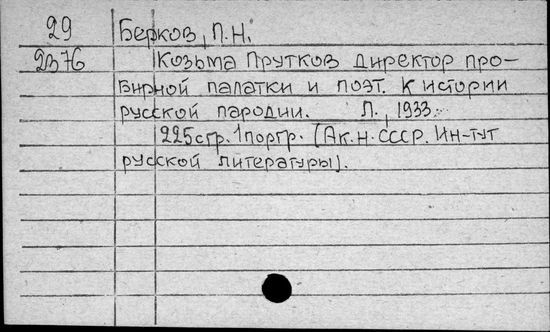 29 Берков, П.Н.
2376 Козьма Прутков директор про-
бирной палатки и поэт. К истории
русской пародии. Л., 1933.
225стр. 1портр. (Ак.н.СССР. Ин-тут
русской литературы).